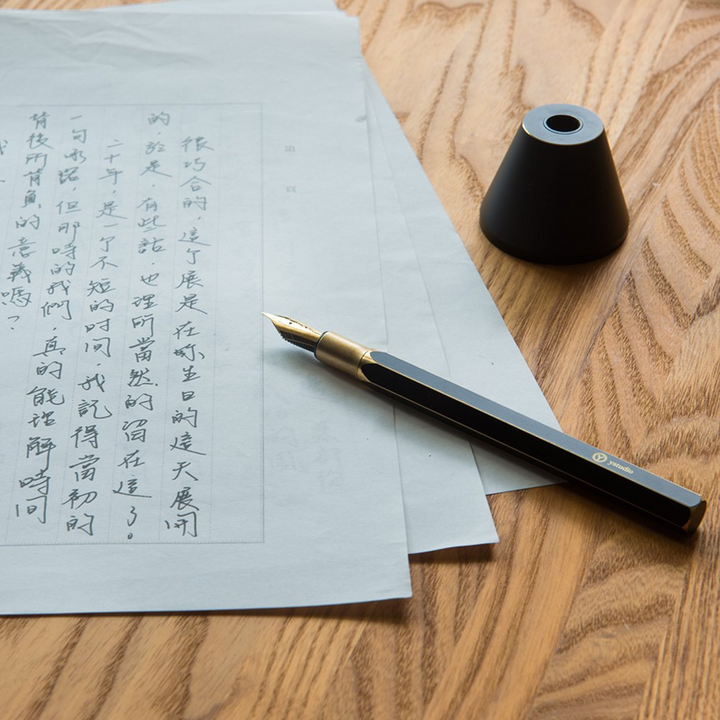 很巧合的，這个展是在你生日的這天展開
的，於是，有些話也理所當然的留在這了。
二十年，是一个不短的时间，我記得當初的
一句承諾，但那時的我們，真的能理解時间
背後所背負的意義嗎？
ystudio